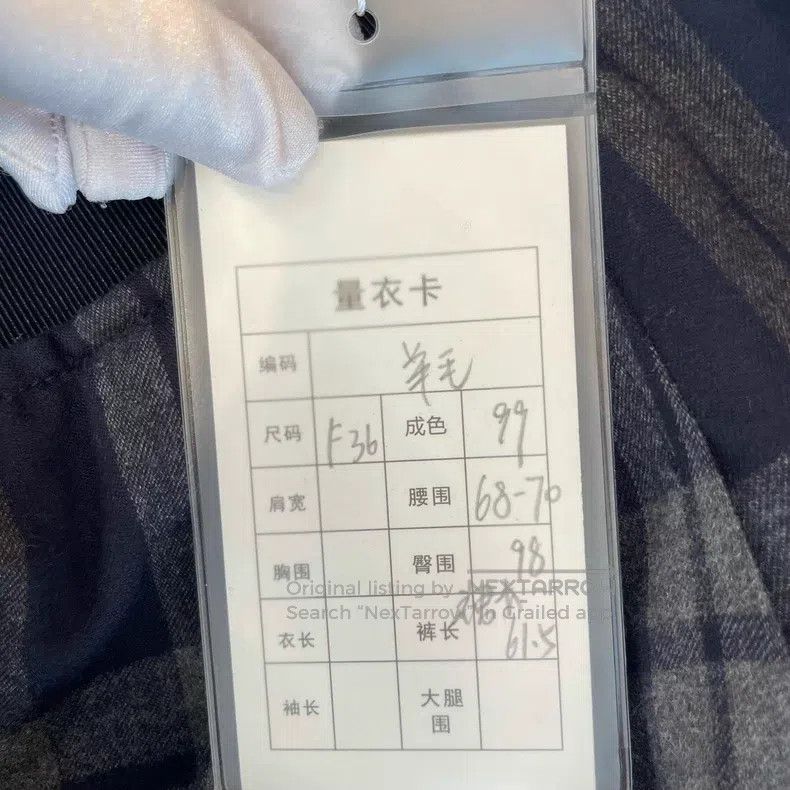 量衣卡
编码 羊毛
尺码 F36 成色 99
肩宽 腰围 68-70
胸围 臀围 98
Original listing by NEXTARROW
Search “NexTarrow” in Grailed app
衣长 裤长 裙长 61.5
袖长 大腿
围